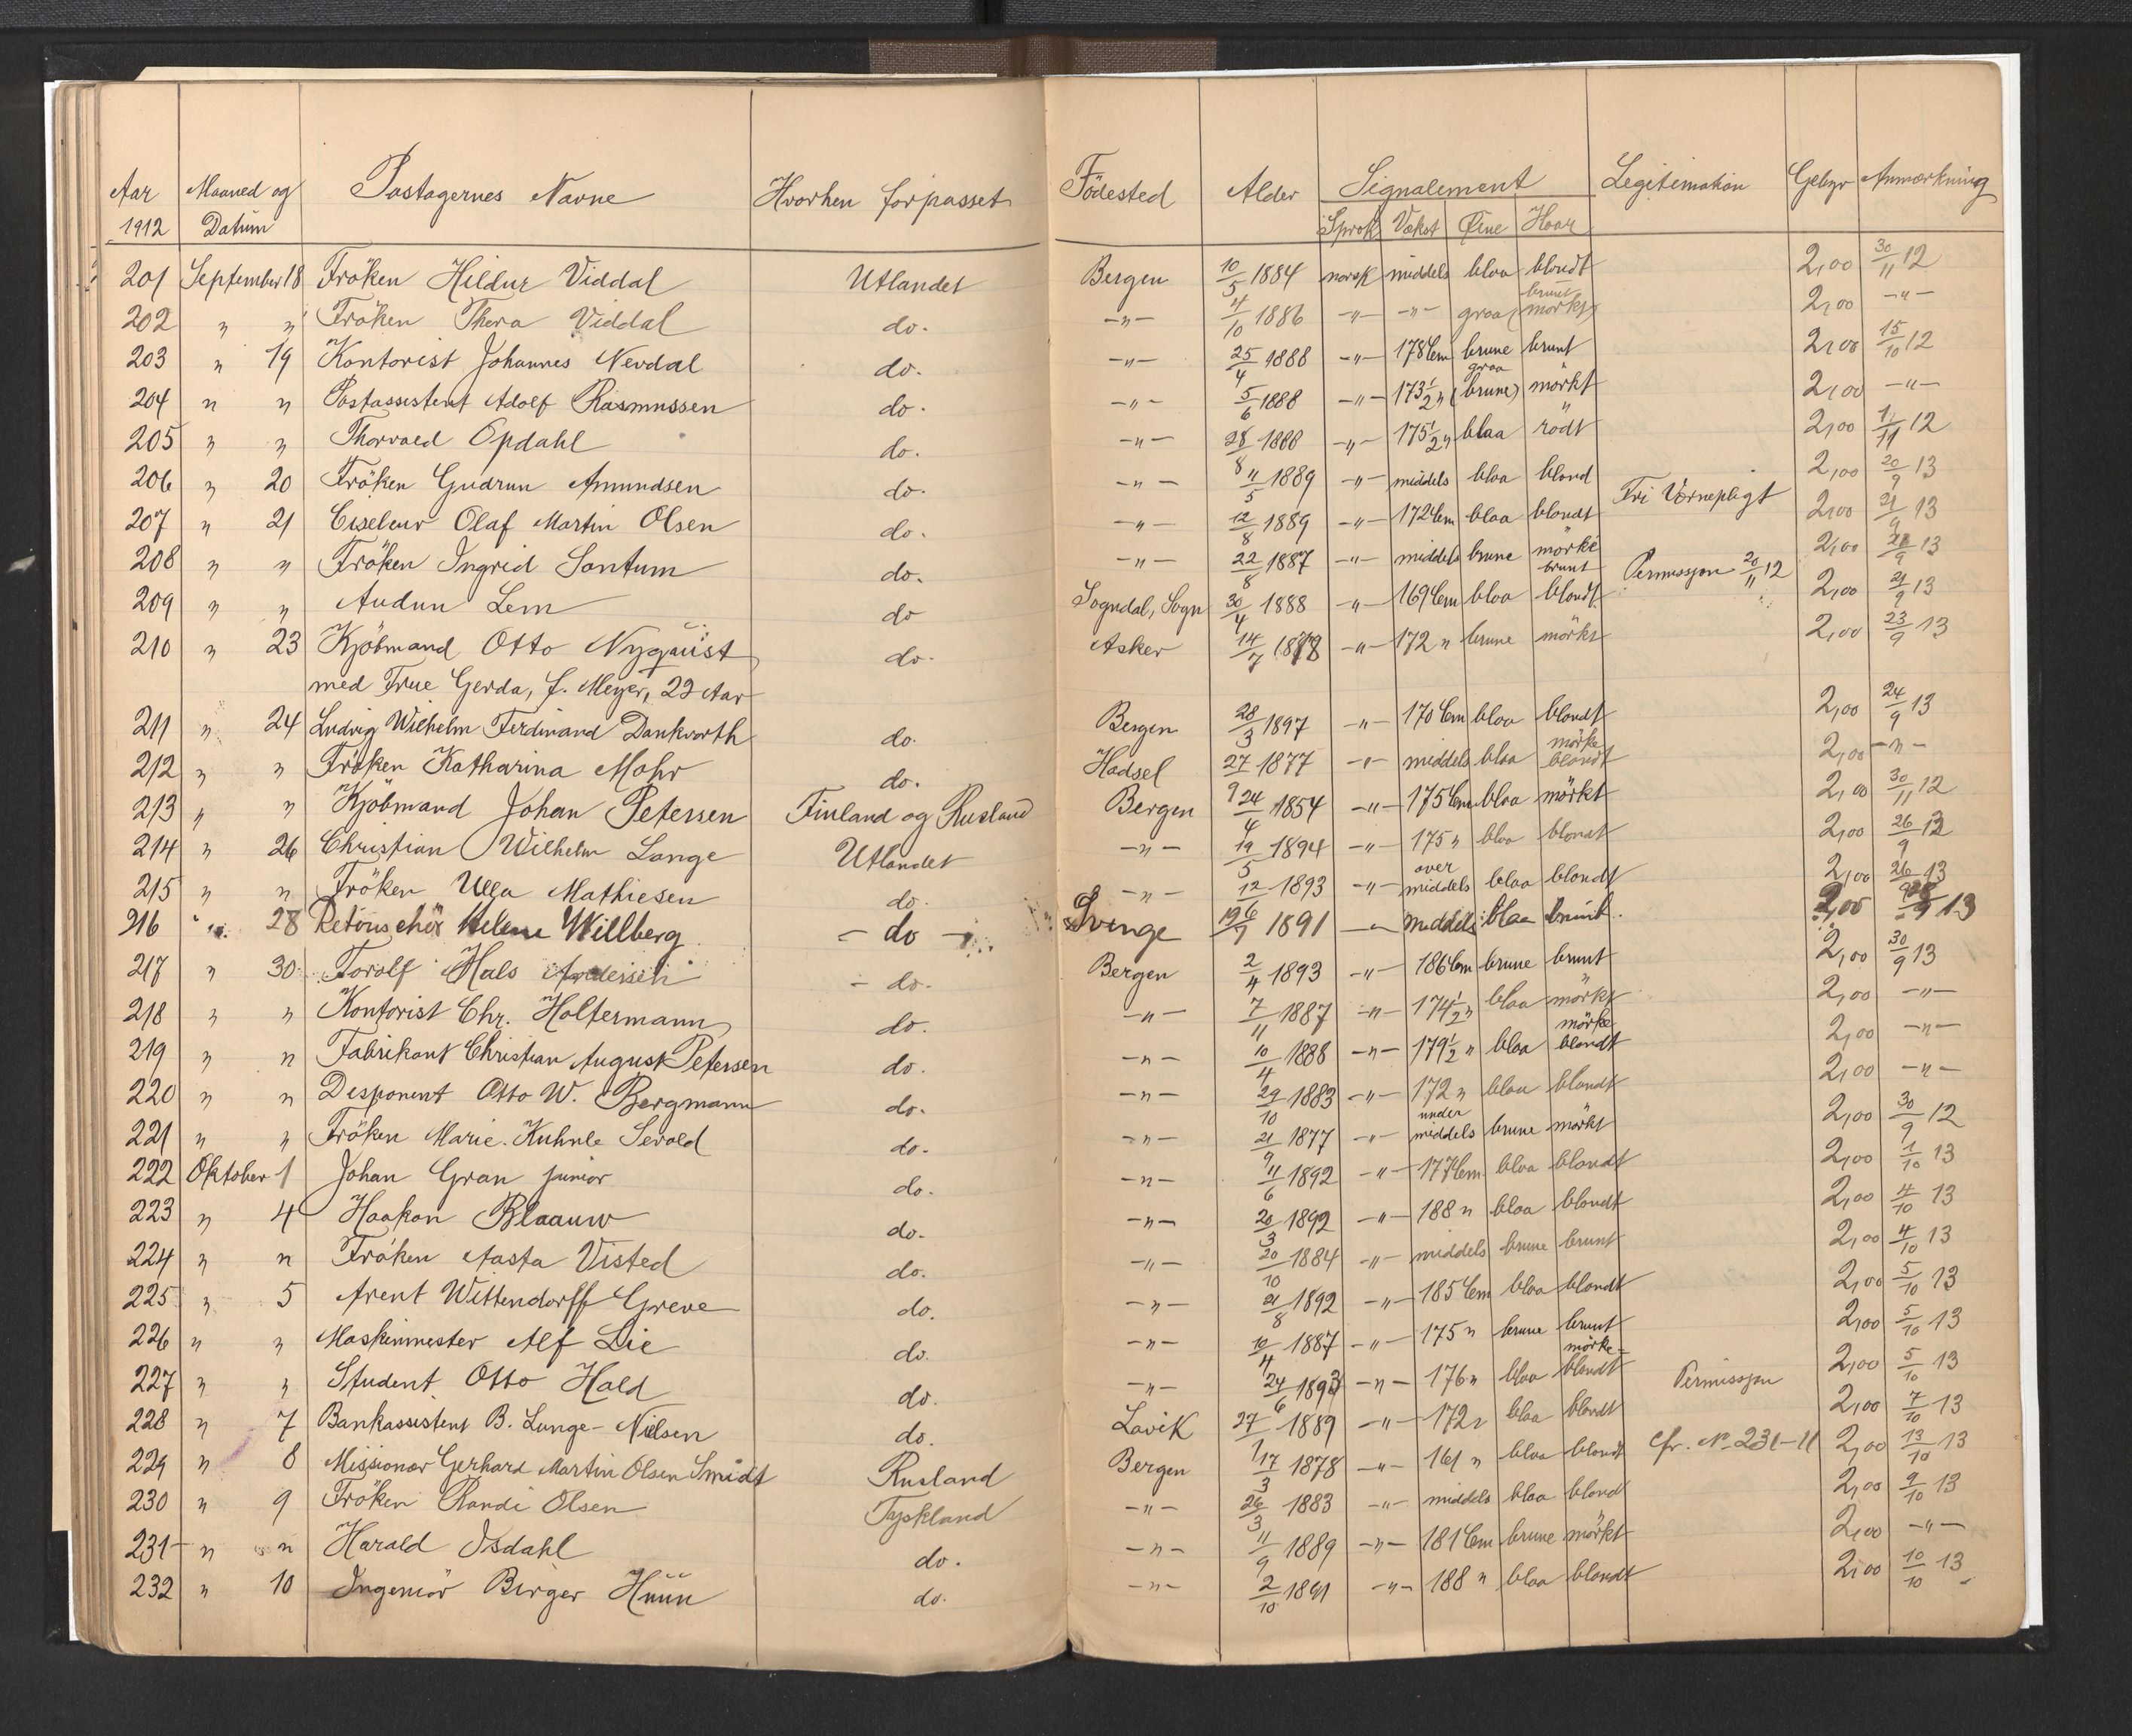 Aar Maaned og Pastagernes Navne Hvorhen forpasset Födested Alder Signalement Legitimation Gebyr Anmærkning
1912 Datum Sprok Vekst Øine Haar
201 September 18 Fröken Hildur Viddal Utlandet Bergen 10/5 1884 norsk middels blaa blondt 2,00 30/11 12
202 " " Fröken Thora Viddal do. -"- 4/10 1886 -"- -"- graa (brunt mørkt) 2,00 -"-
203 " 19 Kontorist Johannes Nevdal do. -"- 25/4 1888 -"- 178 Cm brune brunt 2,00 15/10 12
204 " " Postassistent Adolf Rasmussen do. -"- 5/6 1888 -"- 173 1/2 " graa (brune) mörkt 2,00 -"-
205 " " Thorvald Opdahl do. -"- 28/8 1888 -"- 175 1/2 " blaa rödt 2,00 1/11 12
206 " 20 Fröken Gudrun Amundsen do. -"- 11/5 1889 -"- middels blaa blond 2,00 20/9 13
207 " 21 Ciseleur Olaf Martin Olsen do. -"- 12/8 1889 -"- 172 Cm blaa blondt Fri Værnepligt 2,00 21/9 13
208 " " Fröken Ingrid Sontum do. -"- 22/8 1887 -"- middels brune mörke brunt 2,00 21/9 13
209 " " Audun Lem do Sogndal, Sogn 30/4 1888 -"- 169 Cm blaa blondt Permissjon 20/11 12 2,00 21/9 13
210 " 23 Kjöbmand Otto Nyquist do. Asker 14/7 1878 -"- 172 " brune mörkt 2,00 23/9 13
med Frue Gerda, f. Meyer, 22 Aar
211 " 24 Ludvig Wilhelm Ferdinand Dankvorth do. Bergen 28/3 1897 -"- 170 Cm blaa blondt 2,00 24/9 13
212 " " Fröken Katharina Mohr do. Hadsel 27/9 1877 -"- middels blaa mörke blondt 2,00 -"-
213 " " Kjöbmand Johan Petersen Finland og Rusland Bergen 24/4 1854 -"- 175 Cm blaa mörkt 2,00 30/11 12
214 " 26 Christian Wilhelm Lange Utlandet -"- 19/5 1894 -"- 175 " blaa blondt 2,00 26/9 12
215 " " Fröken Ulla Mathiesen do. -"- 12 1893 -"- over middels blaa blondt 2,00 26/9 13
216 " 28 Retouschör Helene Willberg - do - Sverige 1891 -"- middels blaa brunt. 2,00 28/9 13
217 " 30 Torolf Hals Andersen - do. - Bergen 2/4 1893 -"- 186 Cm brune brunt 2,00 30/9 13
218 " " Kontorist Chr. Holtermann do. -"- 7/11 1887 -"- 174 1/2 " blaa mörkt 2,00 -"-
219 " " Fabrikant Christian August Petersen do. -"- 10/4 1888 -"- 179 1/2 " blaa mörke blondt 2,00 -"-
220 " " Desponent Otto W. Bergmann do. -"- 29/10 1883 -"- 172 " blaa blondt 2,00 -"-
221 " " Fröken Marie Kuhnle Sevold do. -"- 21/9 1877 -"- under middels brune mörkt 2,00 30/9 12
222 Oktober 1 Johan Gran junior do. -"- 11/6 1892 -"- 177 Cm blaa blondt 2,00 1/10 13
223 " 4 Haakon Blaauw do. -"- 20/3 1892 -"- 188 " blaa blondt 2,00 4/10 13
224 " " Fröken Aasta Visted do. -"- 20/10 1884 -"- middels brune brunt 2,00 4/10 13
225 " 5 Arent Wittendorff Greve do. -"- 21/8 1892 -"- 185 Cm blaa blondt 2,00 5/10 13
226 " " Maskinmester Alf Lie do. -"- 10/4 1887 -"- 175 " brune brunt 2,00 5/10 13
227 " " Student Otto Hald do. -"- 24/6 1893 -"- 176 " blaa mörke- blondt 2,00 5/10 13
228 " 7 Bankassistent B. Lunge-Nielsen do. Lavik 27/1 1889 -"- 172 " blaa blondt Permissjon 2,00 7/10 13
229 " 8 Missionær Gerhard Martin Olsen Smidt Rusland Bergen 17/3 1878 -"- 161 " blaa blondt Cfr. No 231-11 2,00 13/10 13
230 " 9 Fröken Randi Olsen Tyskland -"- 26/3 1883 -"- middels blaa blond 2,00 9/10 13
231 " " Harald Isdahl do. -"- 11/9 1889 -"- 181 Cm brune mörkt 2,00 -"-
232 " 10 Ingeniör Birger Huun do. -"- 2/10 1891 -"- 188 " blaa blondt 2,00 10/10 13